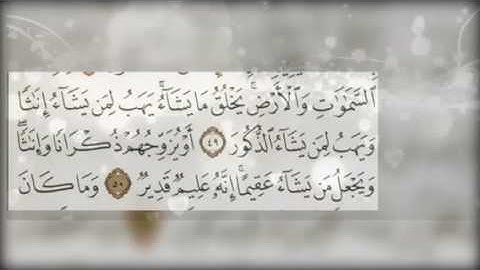 السَّمَٰوَٰتِ وَالْأَرْضِ ۚ يَخْلُقُ مَا يَشَآءُ ۚ يَهَبُ لِمَن يَشَآءُ إِنَٰثًا
وَيَهَبُ لِمَن يَشَآءُ الذُّكُورَ ٤٩ أَوْ يُزَوِّجُهُمْ ذُكْرَانًا وَإِنَٰثًا ۖ
وَيَجْعَلُ مَن يَشَآءُ عَقِيمًا ۚ إِنَّهُ عَلِيمٌ قَدِيرٌ ٥٠ وَمَا كَانَ